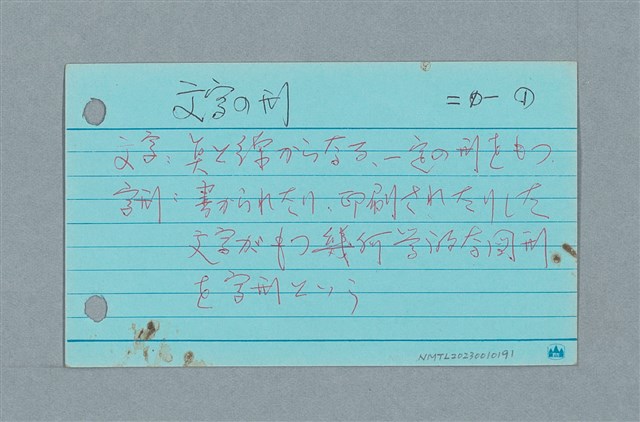 文字の形 二の一 ①
文字：点と線からなる、一定の形をもつ。
字形：書かれたり、印刷されたりした
文字がもつ幾何学的な図形
を字形という
NMTL20230010191